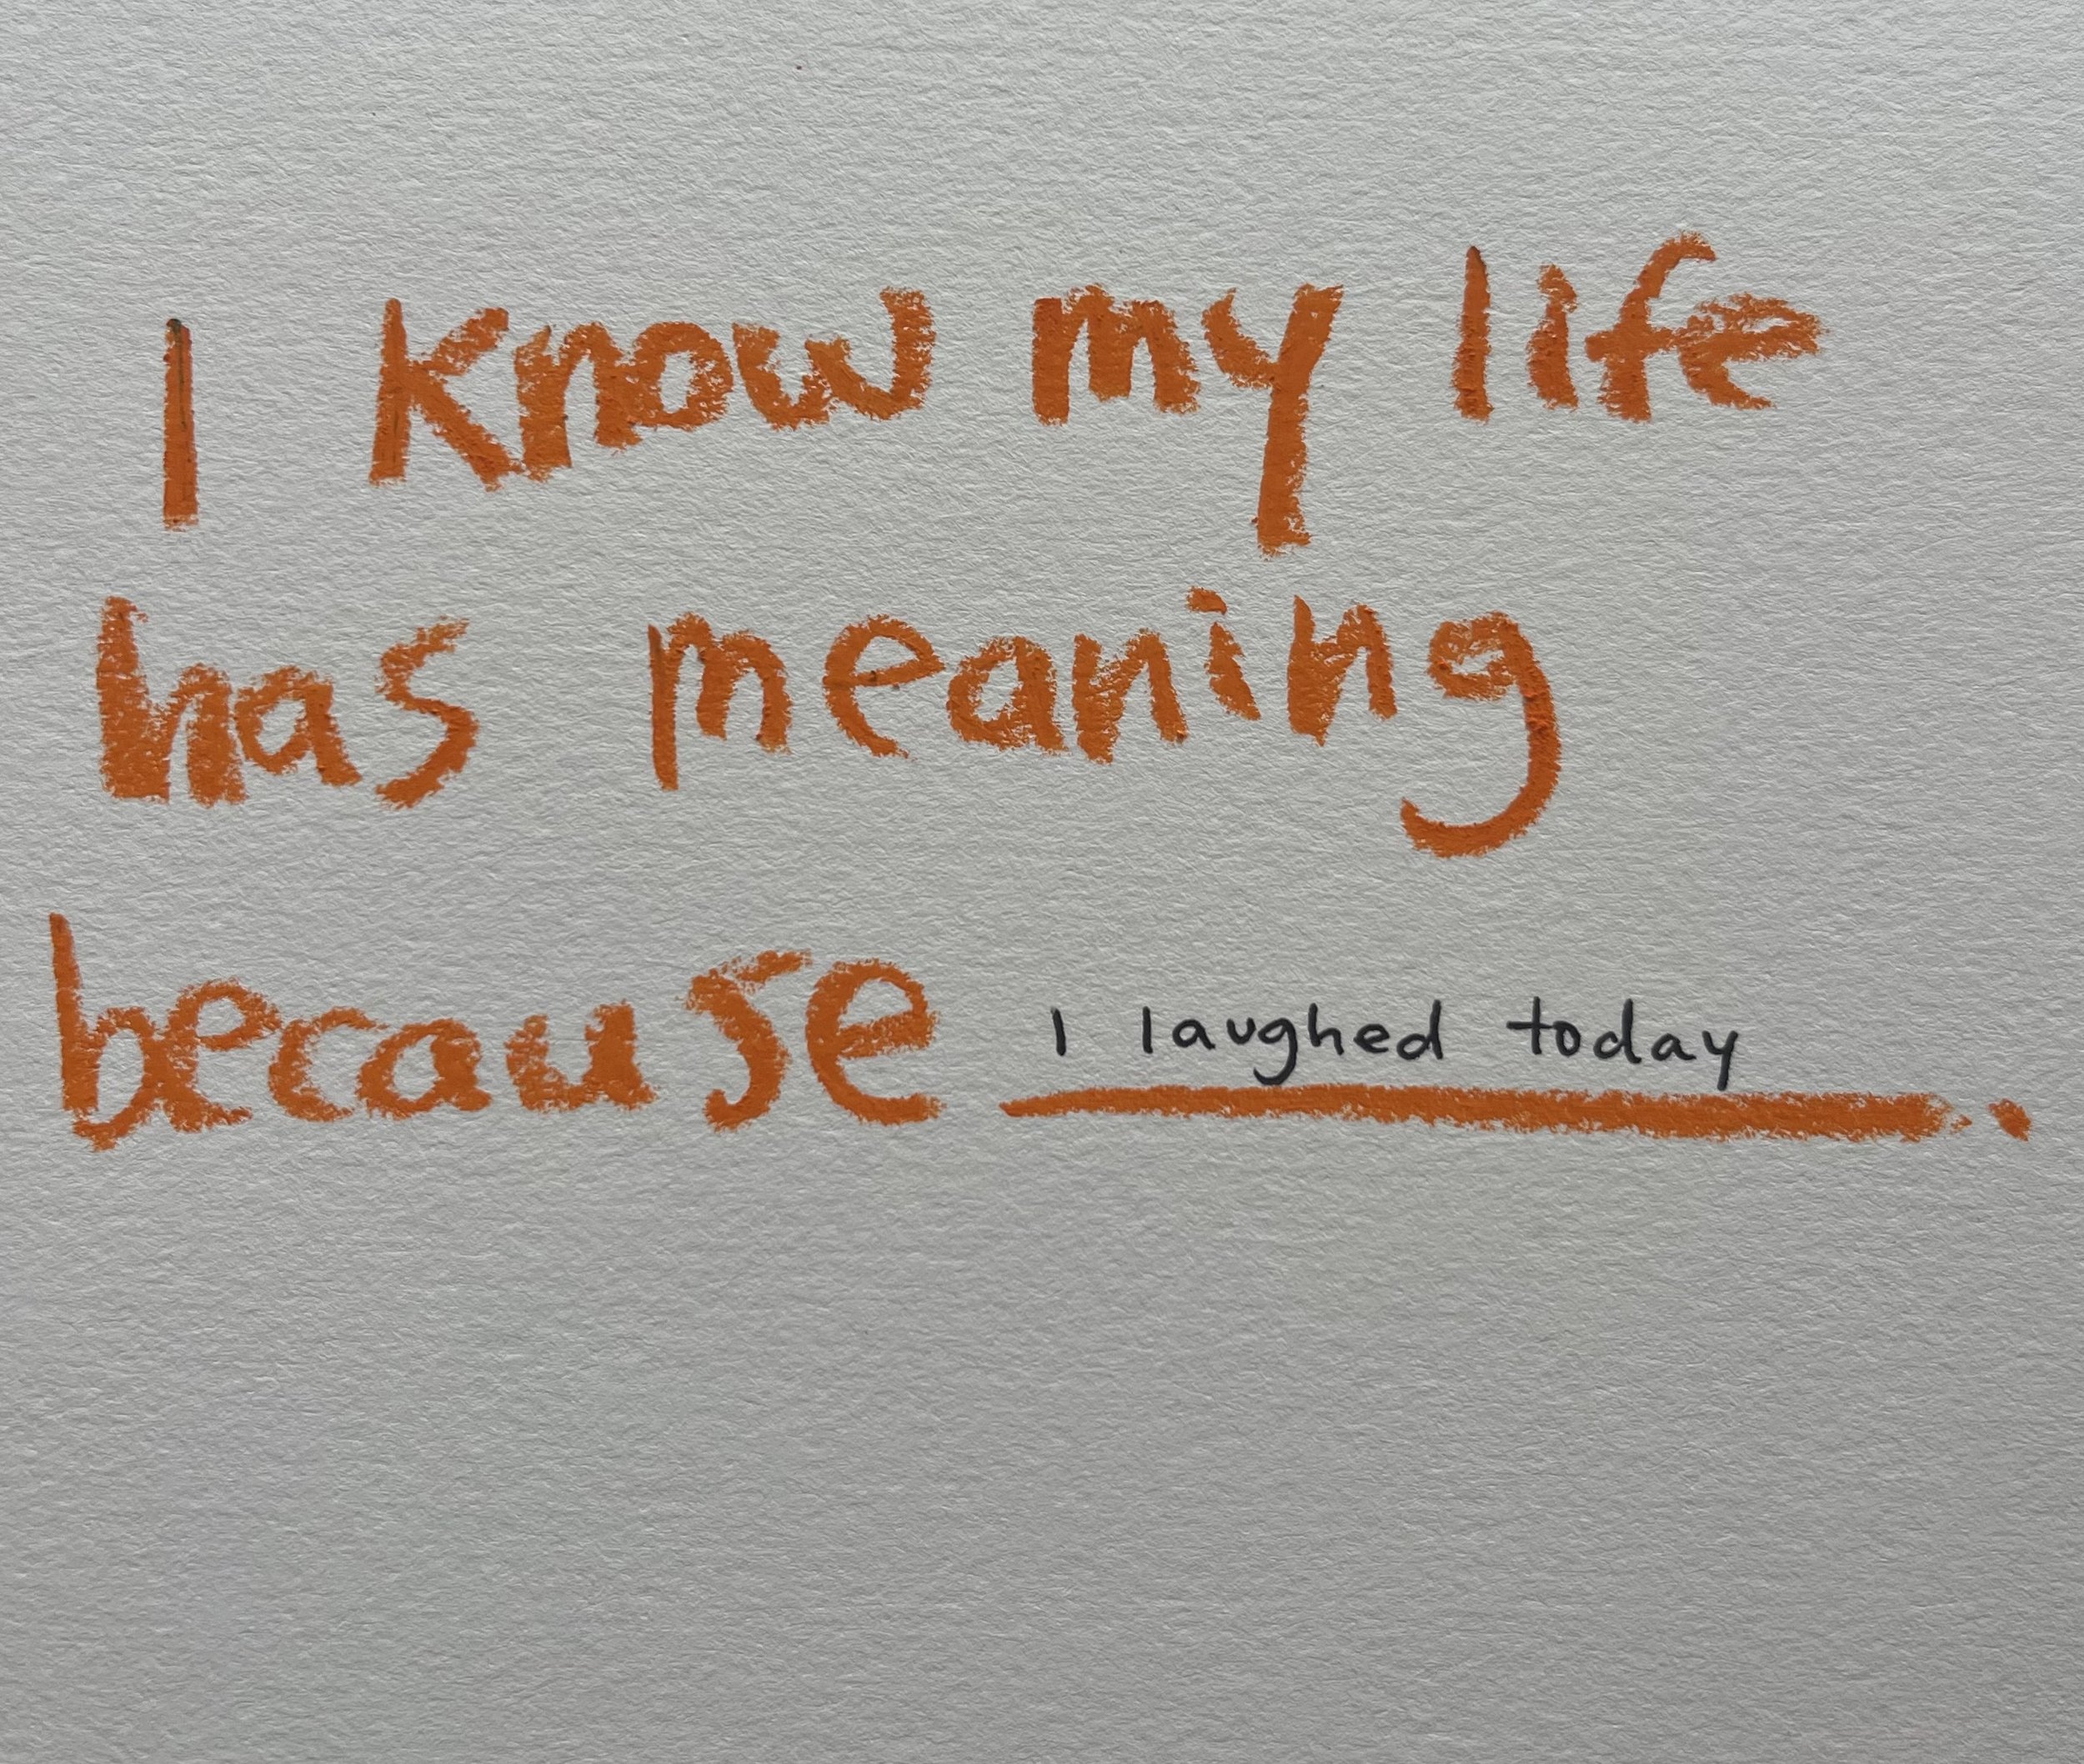 I know my life
has meaning
because I laughed today.